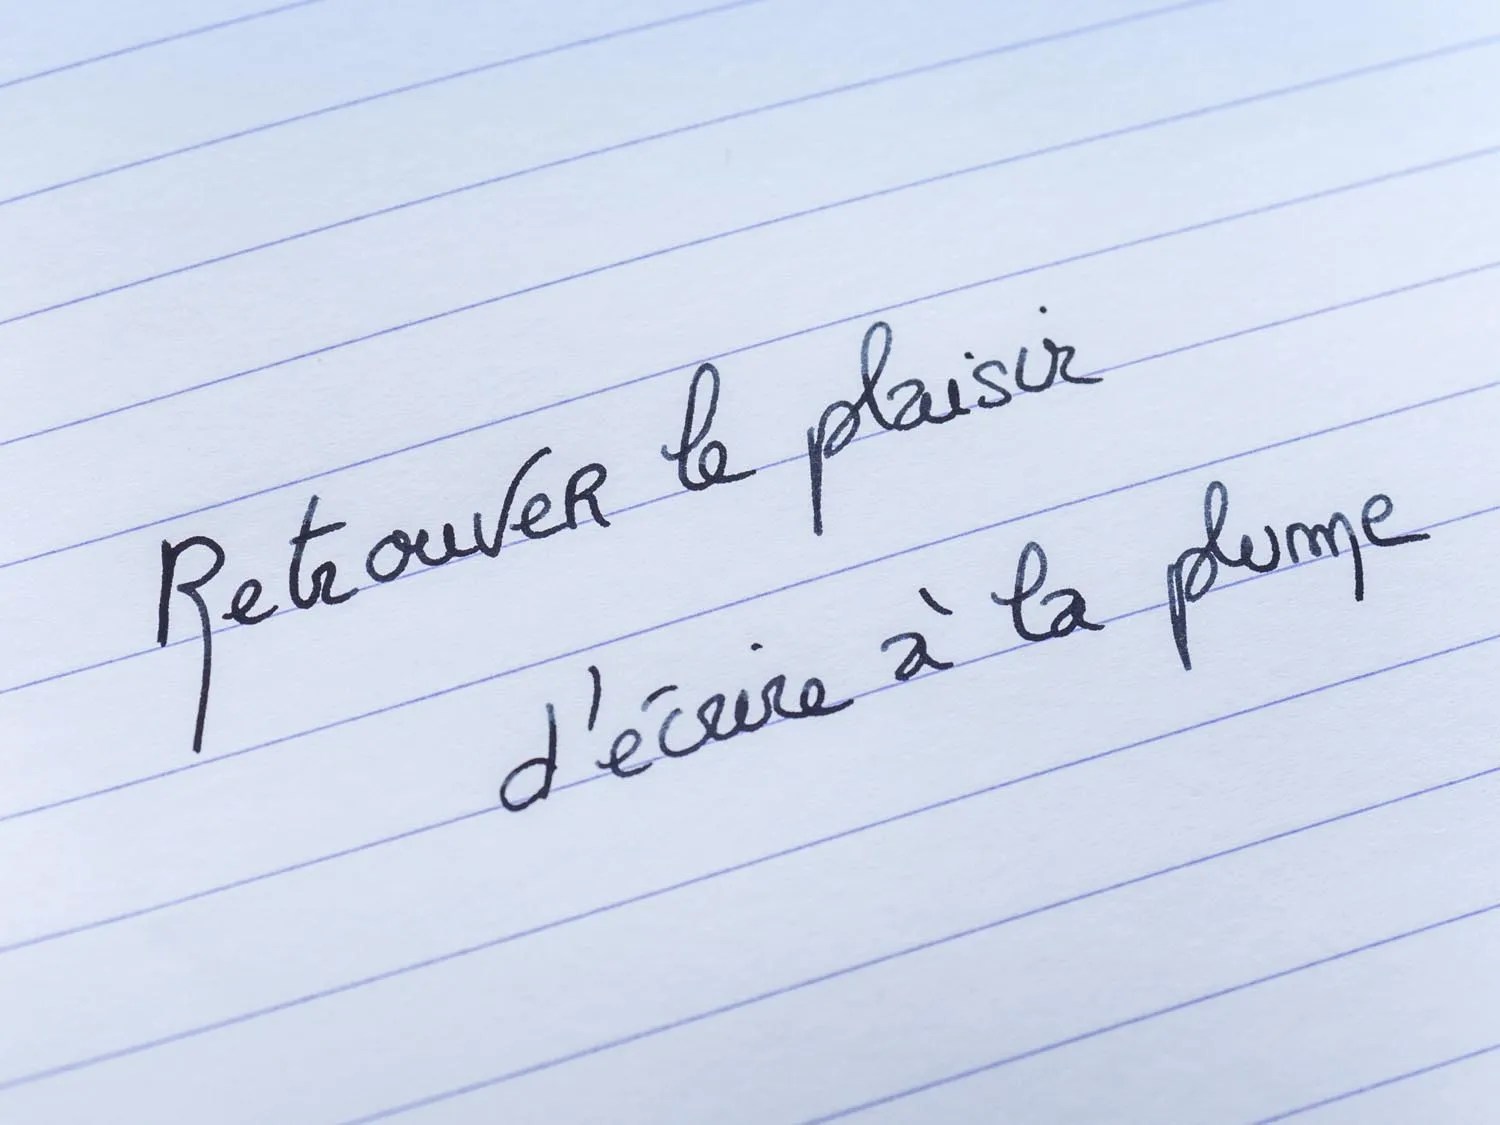 Retrouver le plaisir
d'écrire à la plume